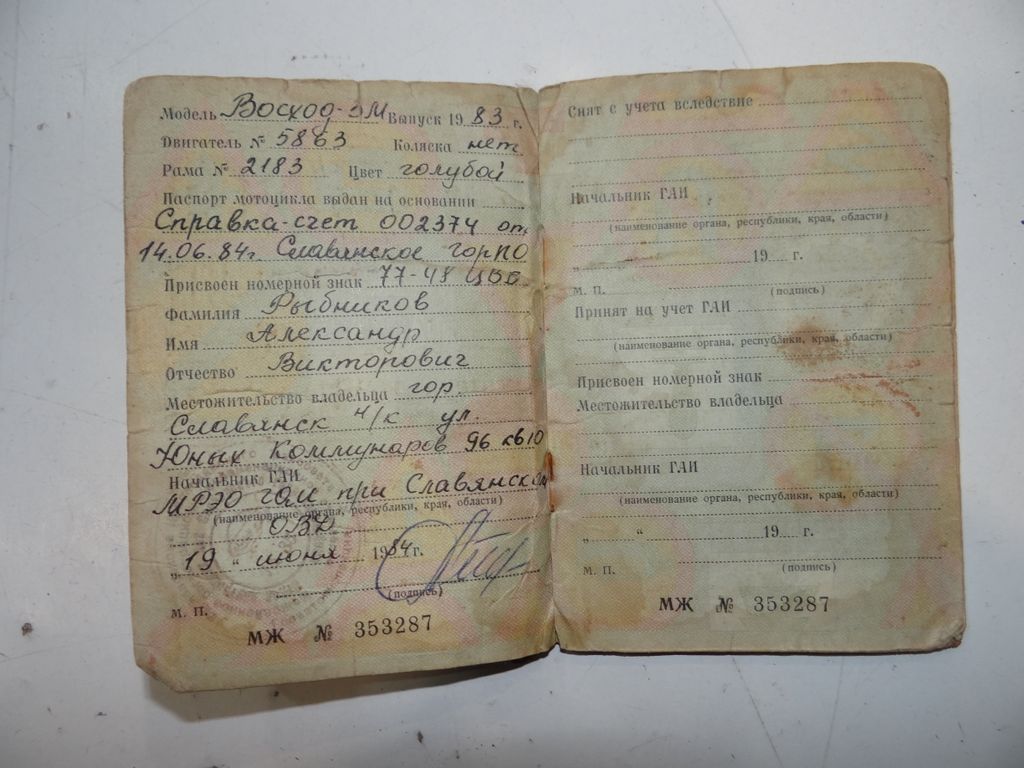 Модель Восход-3М Выпуск 1983 г.
Двигатель № 5863 Коляска нет
Рама № 2183 Цвет голубой
Паспорт мотоцикла выдан на основании
Справка-счет 002374 от
14.06.84г. Славянское горПО
Присвоен номерной знак 77-48
Фамилия Рыбников
Имя Александр
Отчество Викторович
Местожительство владельца гор
Славянск н/к ул.
Юных Коммунаров 96 кв 10
Начальник ГАИ
МРЭО ГАИ при Славянском
(наименование органа, республики, края, области)
ОВД
„19 “ июня 1984г.
(подпись)
М. П.
МЖ № 353287
Снят с учета вследствие
Начальник ГАИ
(наименование органа, республики, края, области)
„ “ 19 г.
М. П. (подпись)
Принят на учет ГАИ
(наименование органа, республики, края, области)
Присвоен номерной знак
Местожительство владельца
Начальник ГАИ
(наименование органа, республики, края, области)
„ “ 19 г.
М. П. (подпись)
МЖ № 353287